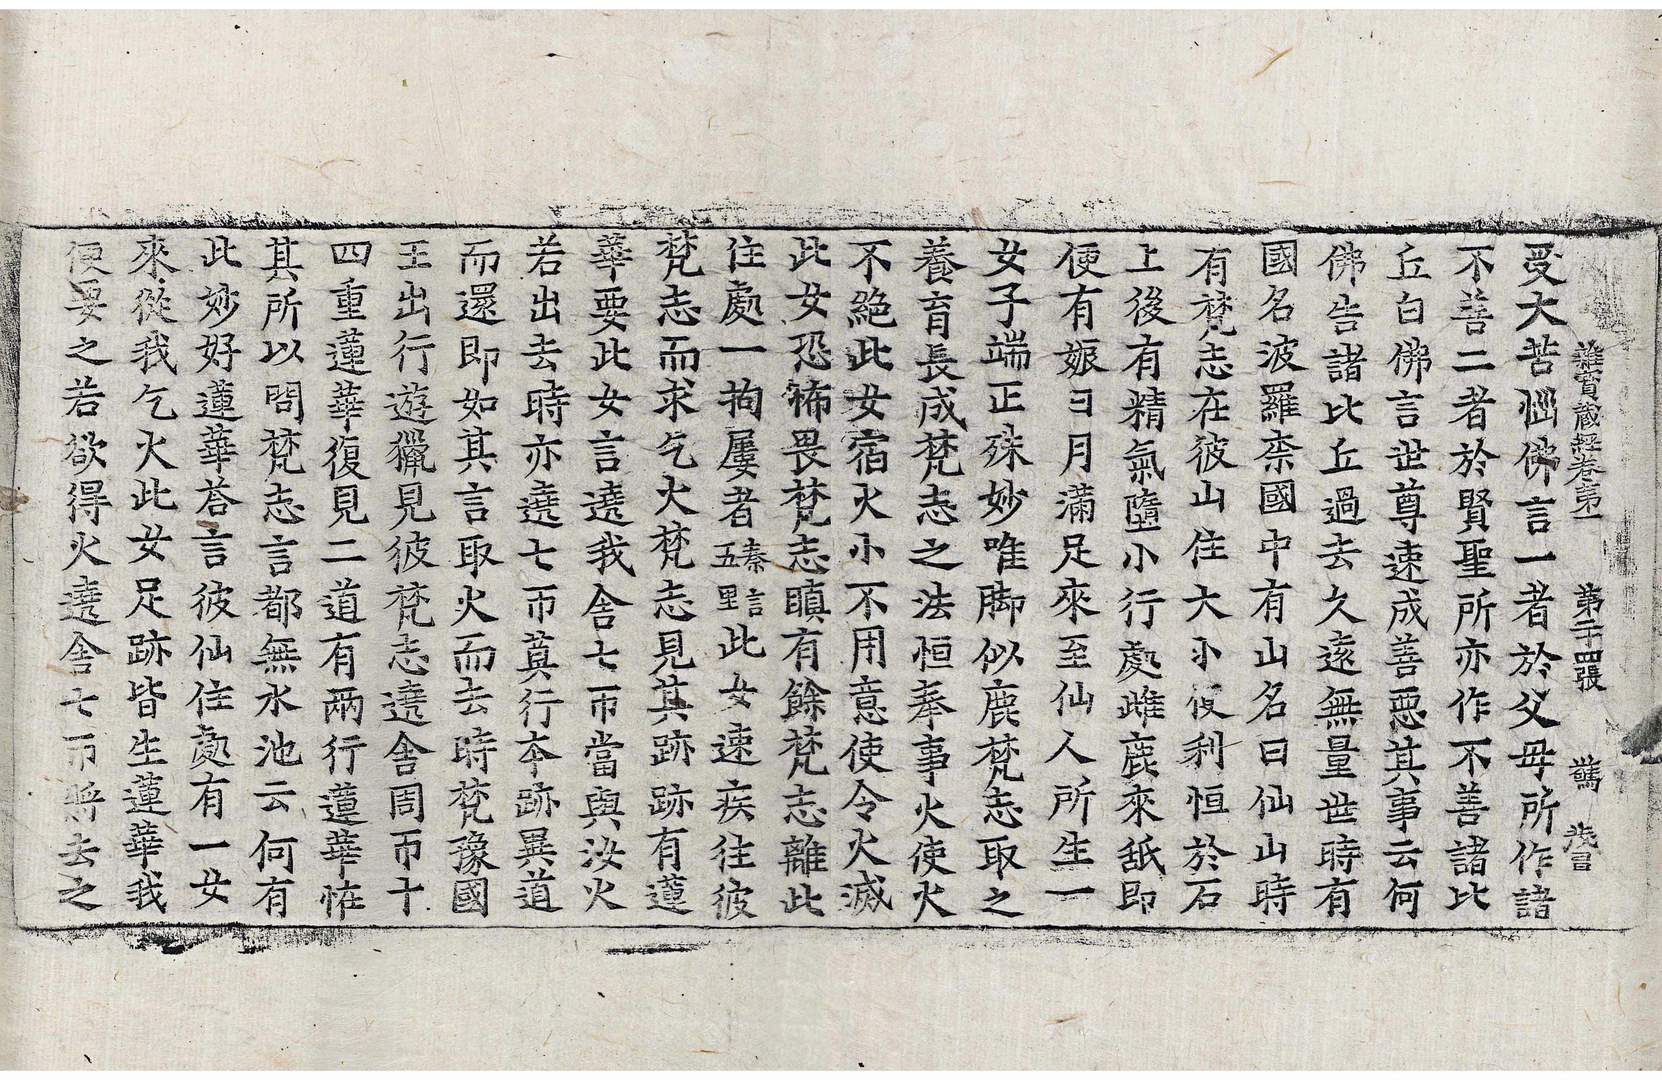 雜寶藏經卷第一 第二十四張 驚
受大苦惱佛言一者於父母所作諸
不善二者於賢聖所亦作不善諸比
丘白佛言世尊速成善惡其事云何
佛告諸比丘過去久遠無量世時有
國名波羅柰國中有山名曰仙山時
有梵志在彼山住大小便利恒於石
上後有精氣墮小行處雌鹿來舐即
便有娠日月滿足來至仙人所生一
女子端正殊妙唯脚似鹿梵志取之
養育長成梵志之法恒奉事火使火
不絕此女宿火小不用意使令火滅
此女恐怖畏梵志瞋有餘梵志離此
住處一拘屢者秦言五里此女速疾往彼
梵志而求乞火梵志見其跡跡有蓮
華要此女言遶我舍七帀當與汝火
若出去時亦遶七帀莫行本跡異道
而還即如其言取火而去時梵豫國
王出行遊獵見彼梵志遶舍周帀十
四重蓮華復見二道有兩行蓮華恠
其所以問梵志言都無水池云何有
此妙好蓮華荅言彼仙住處有一女
來從我乞火此女足跡皆生蓮華我
便要之若欲得火遶舍七帀將去之